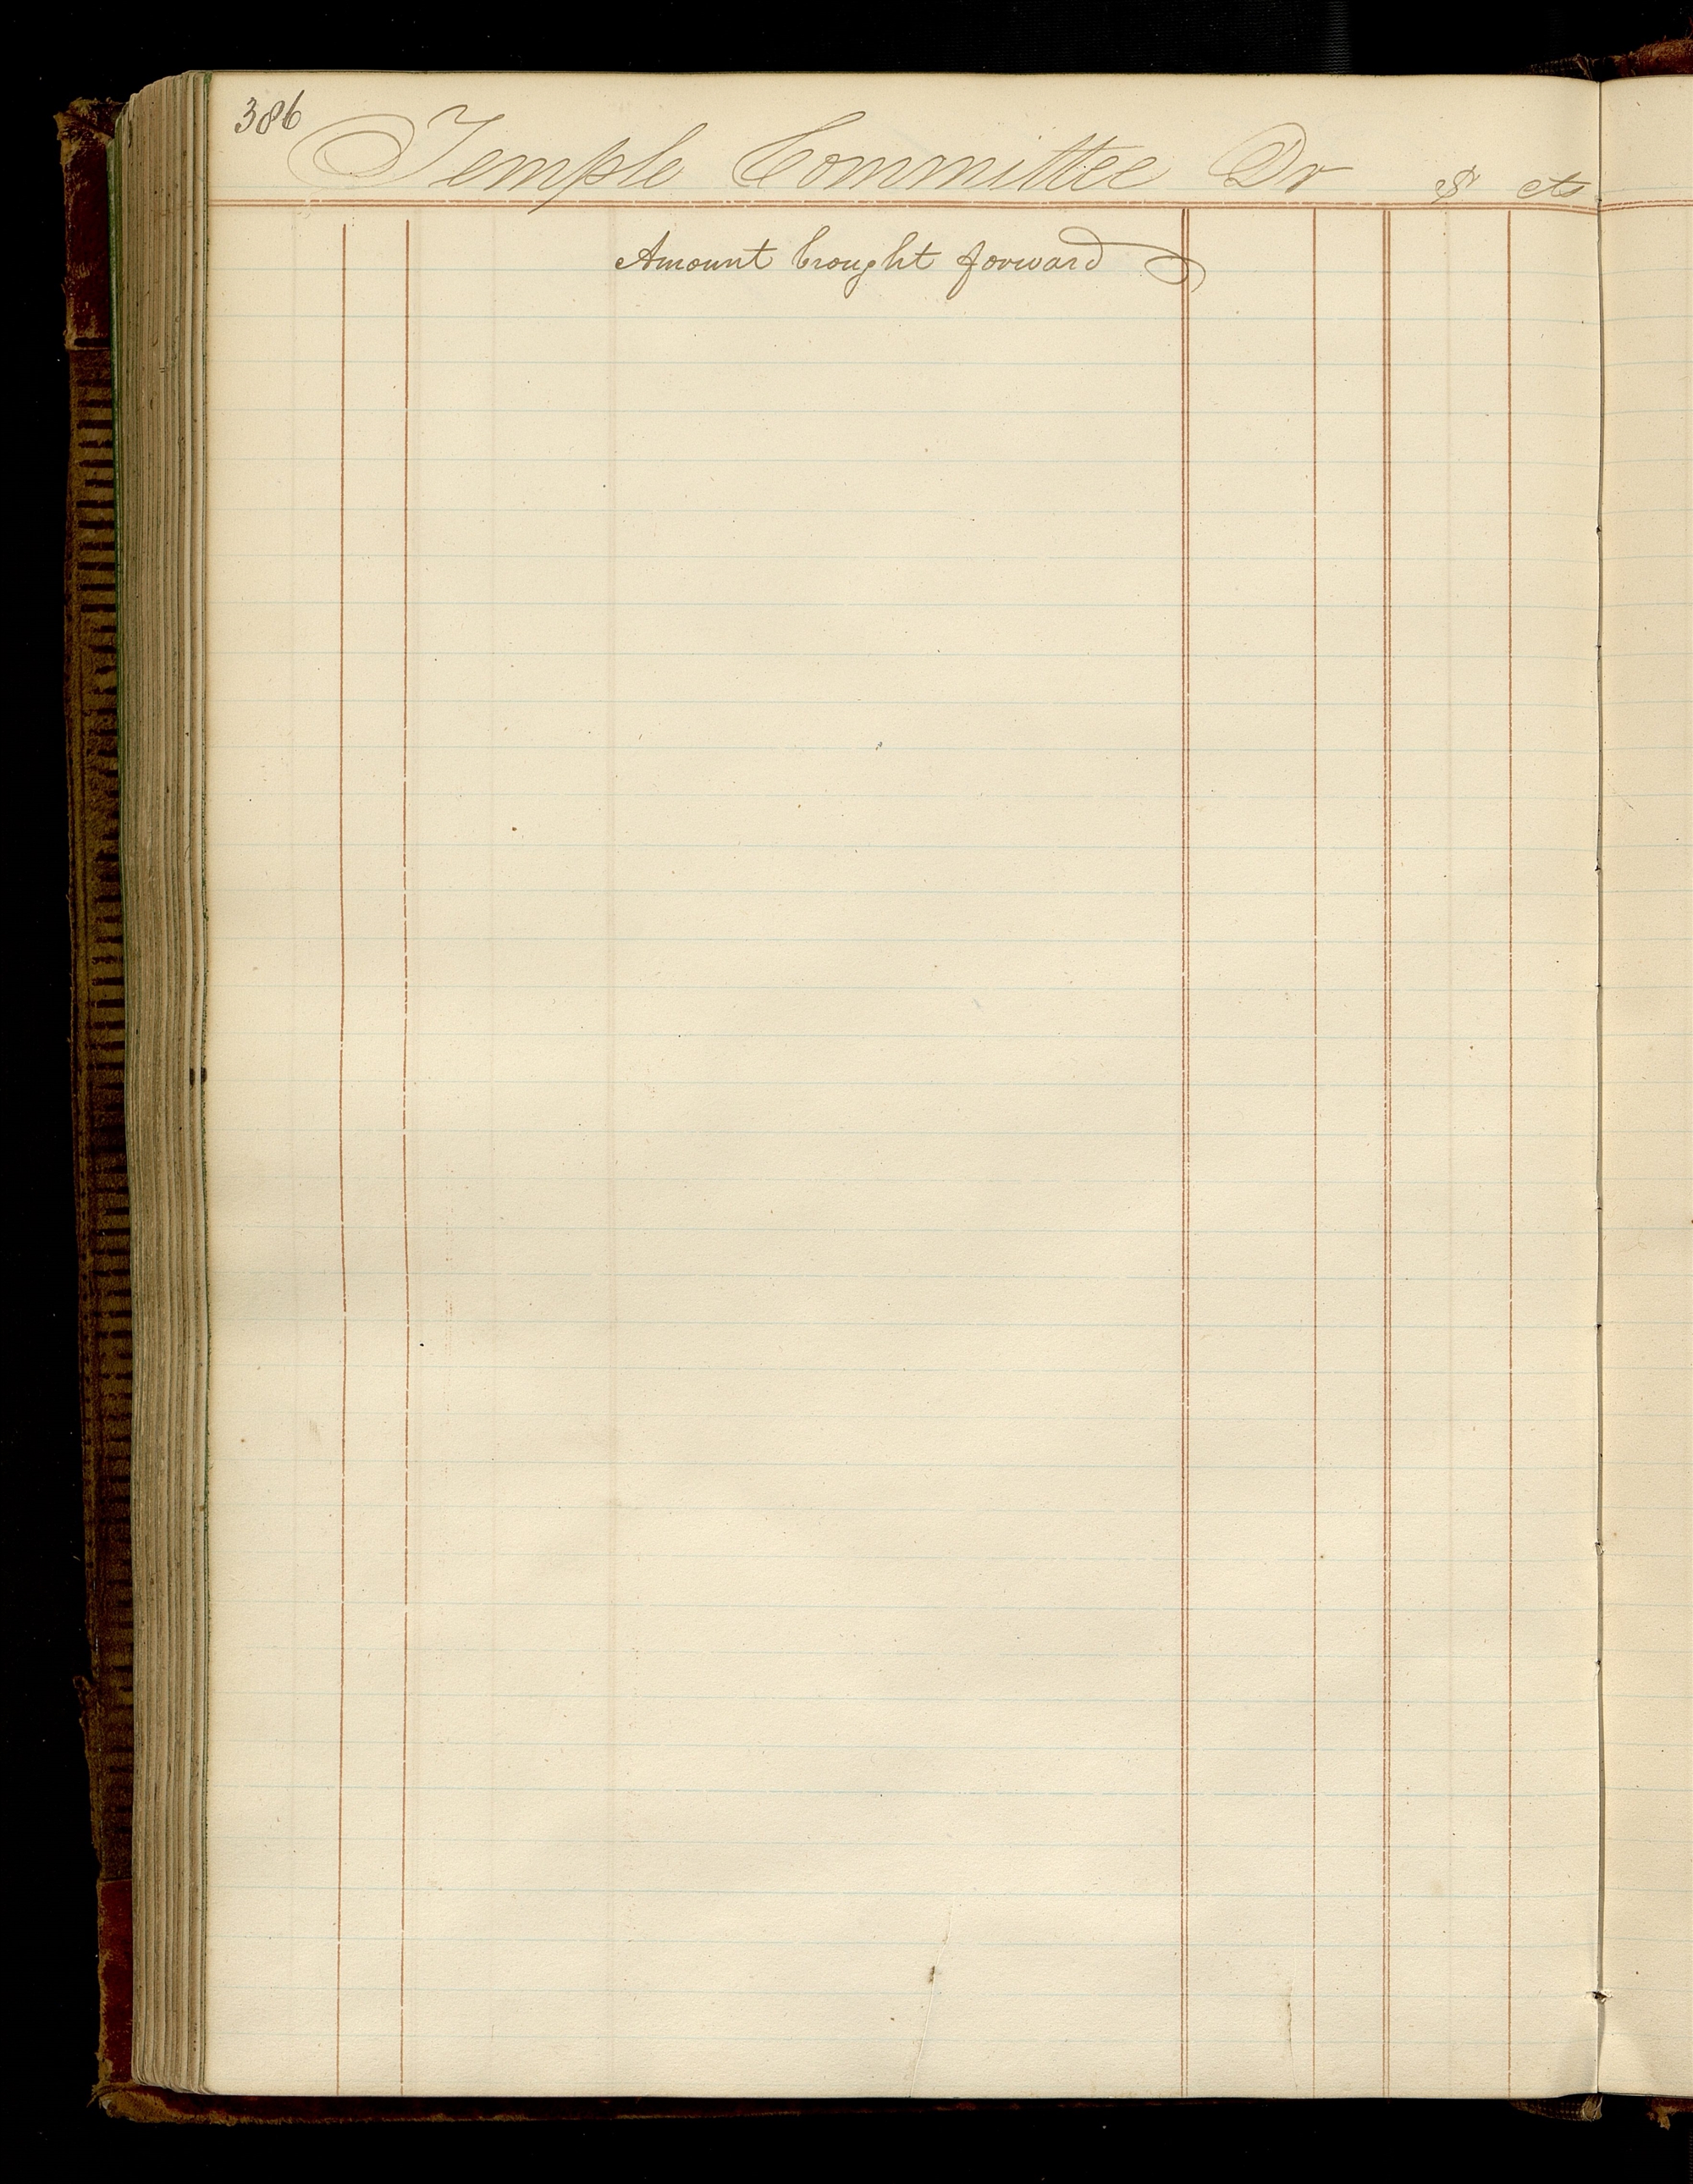 386
Temple Committee Dr $ cts
Amount brought forward